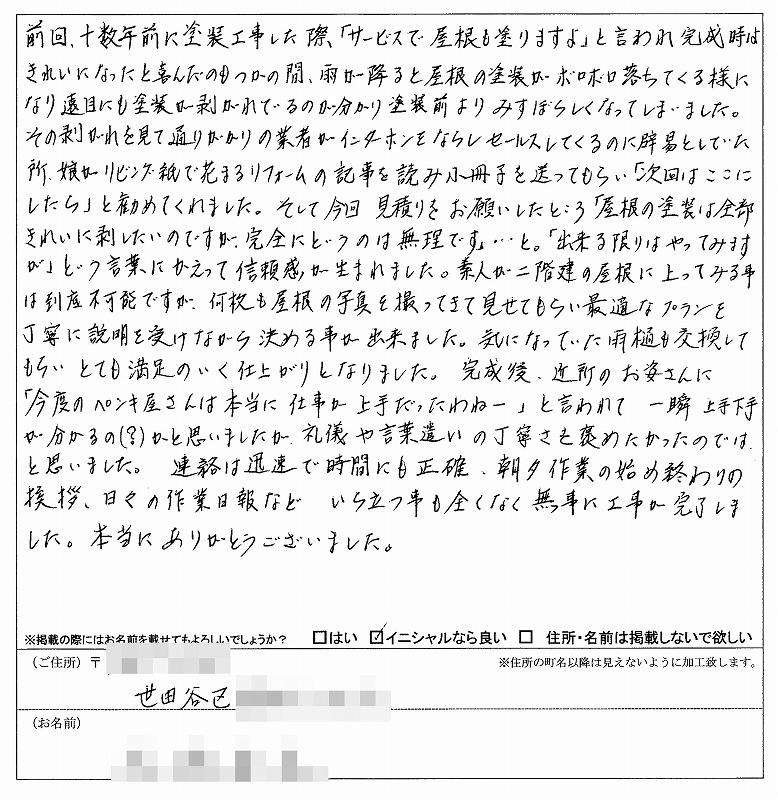 前回、十数年前に塗装工事した際、「サービスで屋根も塗りますよ」と言われ完成時は
きれいになったと喜んだのもつかの間、雨が降ると屋根の塗装がボロボロ落ちてくる様に
なり遠目にも塗装が剥がれているのが分かり塗装前よりみすぼらしくなってしまいました。
その剥がれを見て通りがかりの業者がインターホンをならしセールスしてくるのに辟易としていた
所、娘がリビング紙で花まるリフォームの記事を読み小冊子を送ってもらい「次回はここに
したら」と勧めてくれました。そして今回見積りをお願いしたところ「屋根の塗装は全部
きれいに剥したいのですが、完全にというのは無理です」…と。「出来る限りはやってみます
が」という言葉にかえって信頼感が生まれました。素人が二階建の屋根に上ってみる事
は到底不可能ですが、何枚も屋根の写真を撮ってきて見せてもらい最適なプランを
丁寧に説明を受けながら決める事が出来ました。気になっていた雨樋も交換して
もらいとても満足のいく仕上がりとなりました。完成後、近所のお婆さんに
「今度のペンキ屋さんは本当に仕事が上手だったわねー」と言われて一瞬上手下手
が分かるの(?)かと思いましたが、礼儀や言葉遣いの丁寧さを褒めたかったのでは
と思いました。連絡は迅速で時間にも正確、朝夕作業の始め終わりの
挨拶、日々の作業日報などいら立つ事も全くなく無事に工事が完了しま
した。本当にありがとうございました。
※掲載の際にはお名前を載せてもよろしいでしょうか? □はい ☑イニシャルなら良い □ 住所・名前は掲載しないで欲しい
(ご住所)〒 ※住所の町名以降は見えないように加工致します。
世田谷区
(お名前)